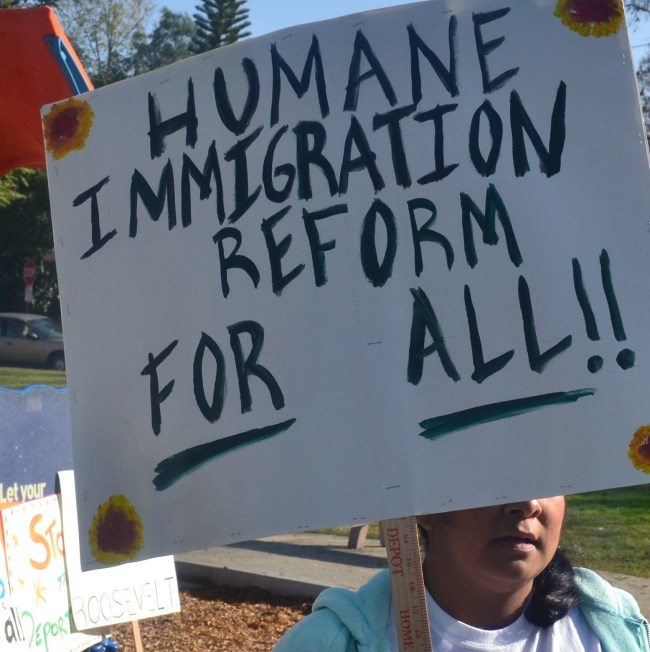 HUMANE
IMMIGRATION
REFORM
FOR ALL!!
Let your
STO
all
DEPORT
ROOSEVELT
HOME DEPOT